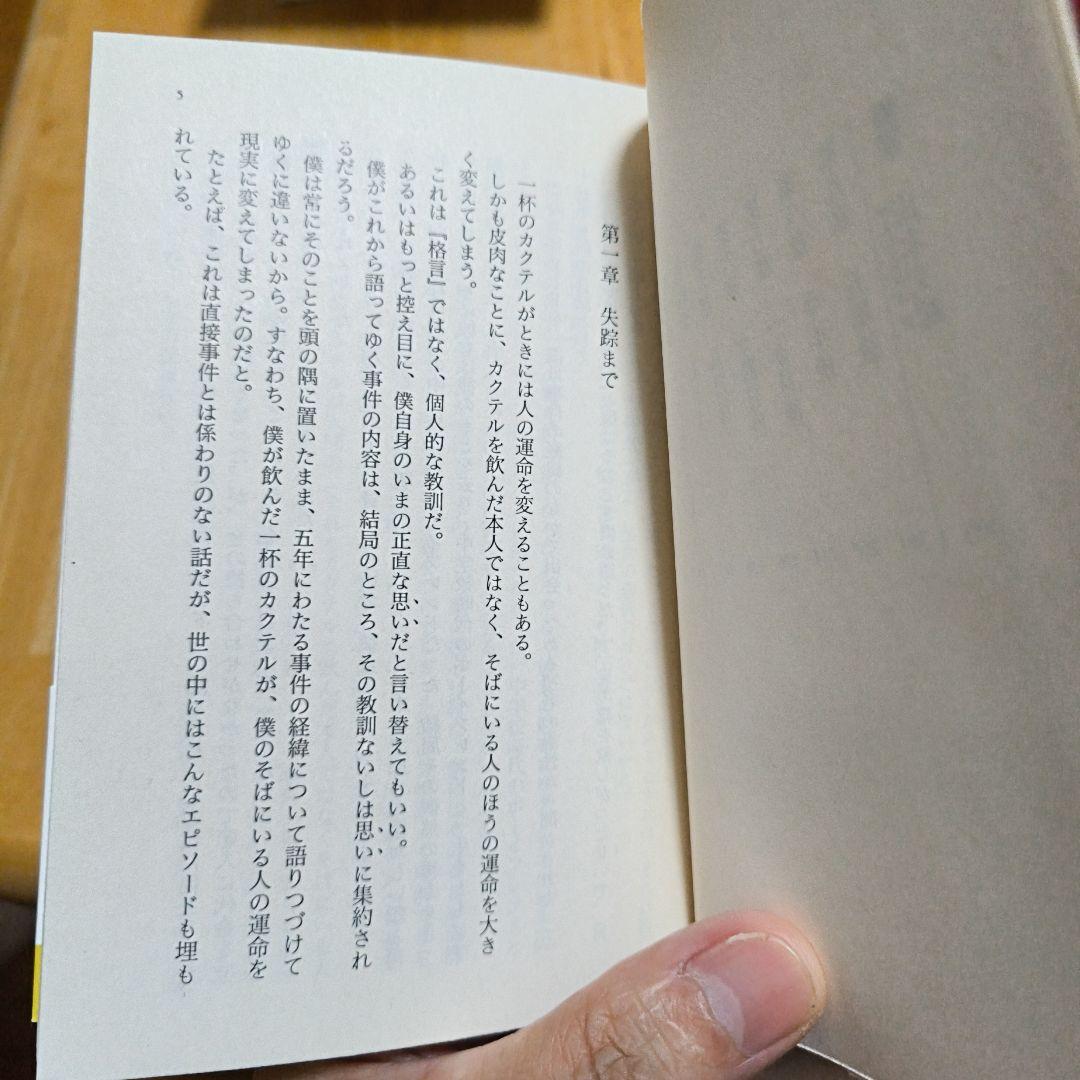 第一章　失踪まで
一杯のカクテルがときには人の運命を変えることもある。
しかも皮肉なことに、カクテルを飲んだ本人ではなく、そばにいる人のほうの運命を大き
く変えてしまう。
これは『格言』ではなく、個人的な教訓だ。
あるいはもっと控え目に、僕自身のいまの正直な思いだと言い替えてもいい。
僕がこれから語ってゆく事件の内容は、結局のところ、その教訓ないしは思いに集約され
るだろう。
僕は常にそのことを頭の隅に置いたまま、五年にわたる事件の経緯について語りつづけて
ゆくに違いないから。すなわち、僕が飲んだ一杯のカクテルが、僕のそばにいる人の運命を
現実に変えてしまったのだと。
たとえば、これは直接事件とは係わりのない話だが、世の中にはこんなエピソードも埋も
れている。
5